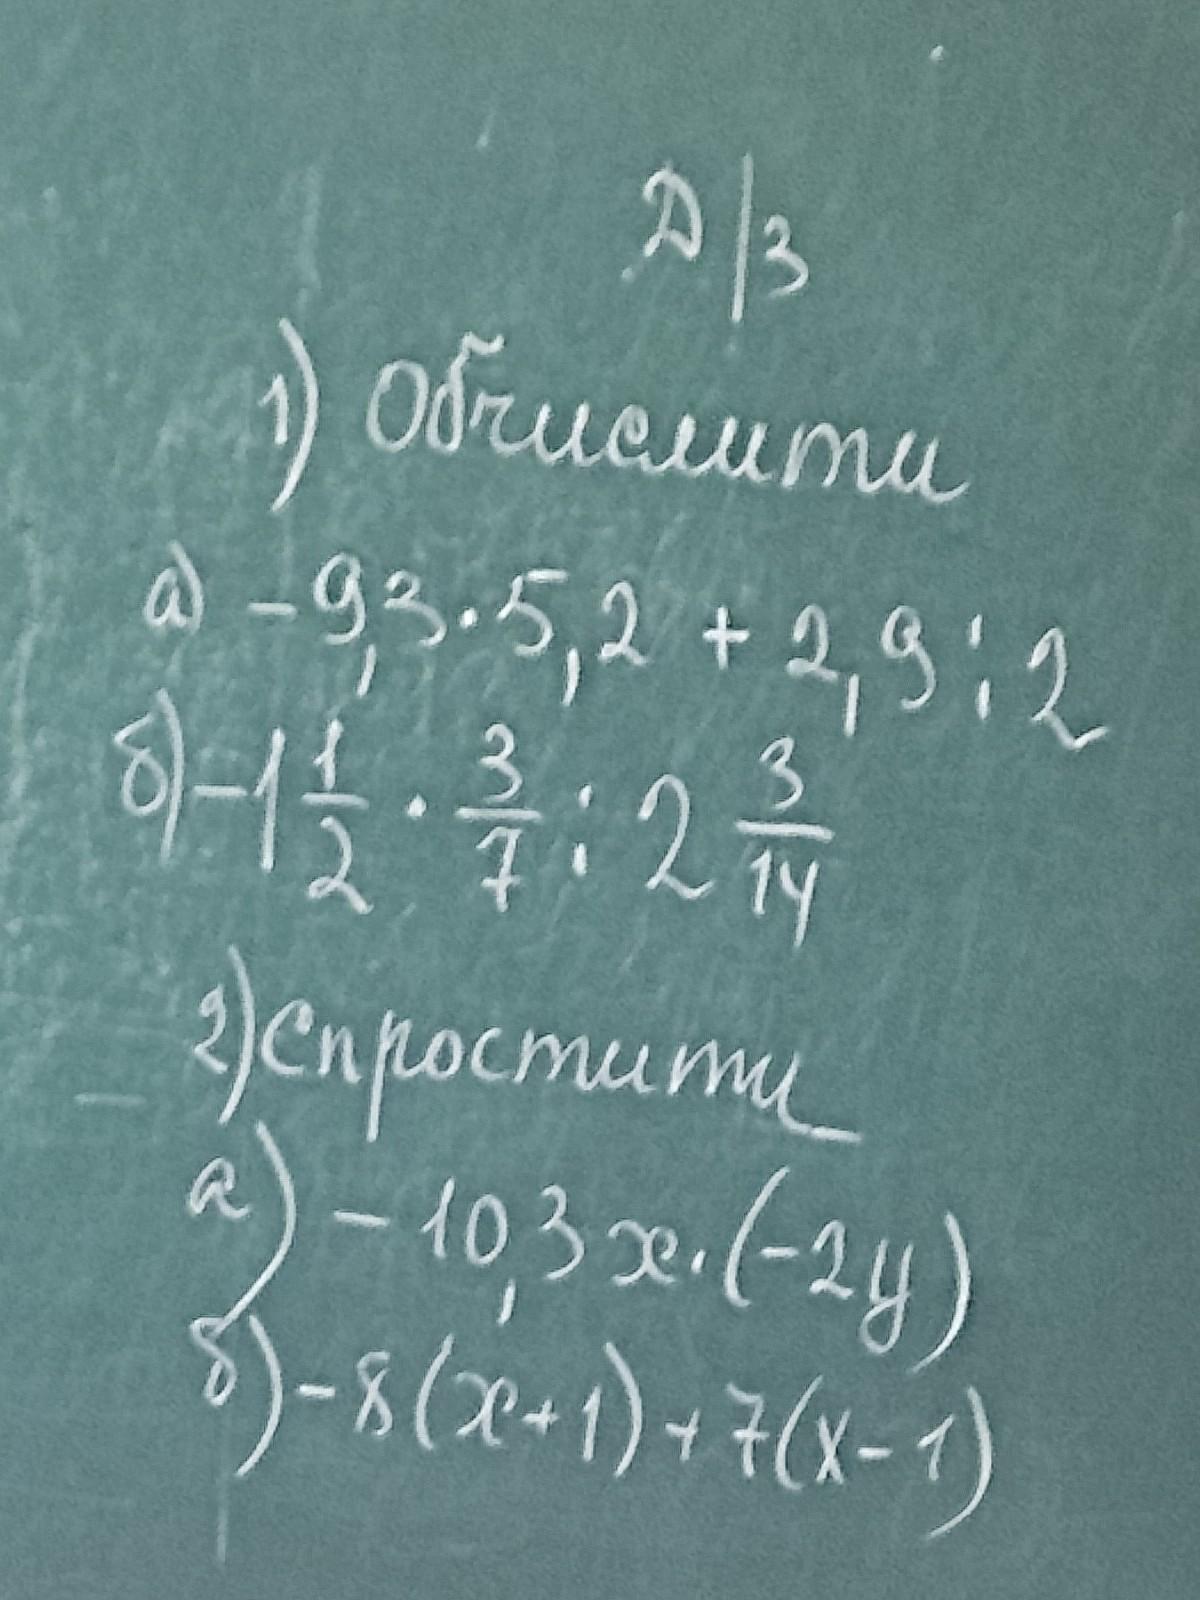 Д/з
1) Обчислити
а) -9,3·5,2 + 2,9:2
б) -1 1/2 · 3/7 : 2 3/14
2) Спростити
а) -10,3x·(-2y)
б) -8(x+1)+7(x-1)